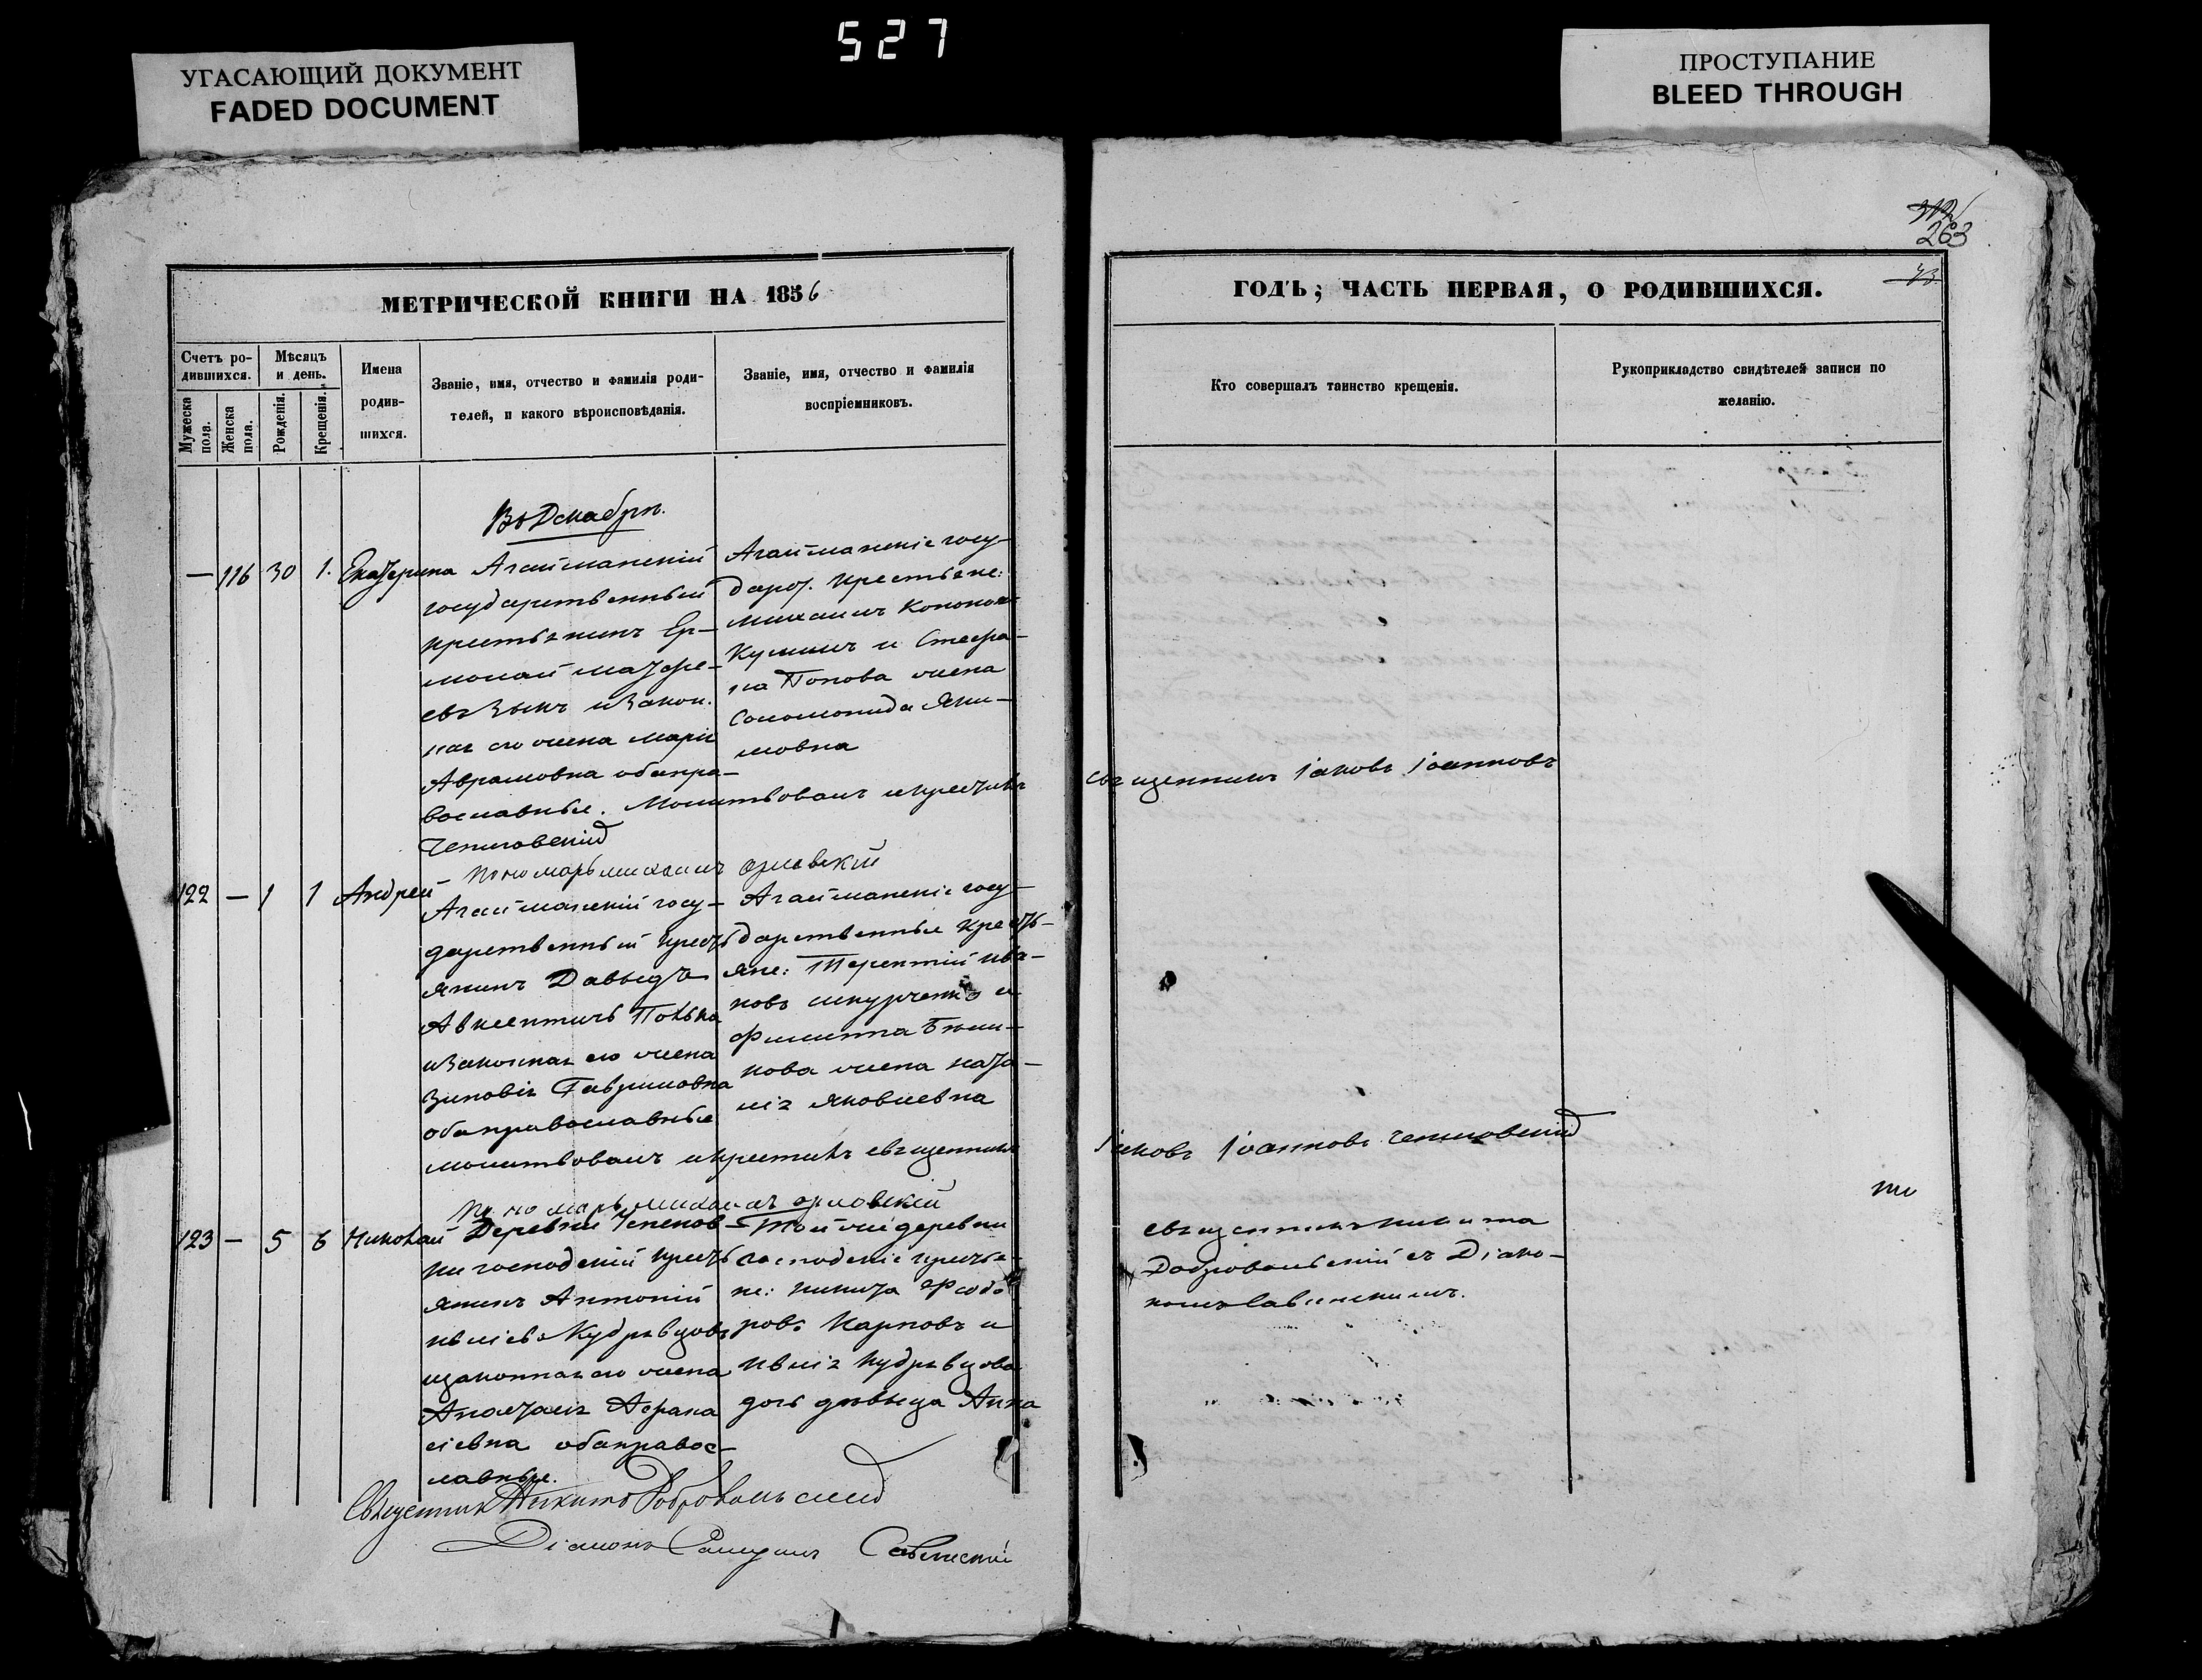 527
УГАСАЮЩИЙ ДОКУМЕНТ
FADED DOCUMENT
ПРОСТУПАНИЕ
BLEED THROUGH
263
МЕТРИЧЕСКОЙ КНИГИ НА 1856
ГОДЪ; ЧАСТЬ ПЕРВАЯ, О РОДИВШИХСЯ.
Счетъ ро-
дившихся.
Мужеска пола.
Женска пола.
Мѣсяцъ
и день.
Рожденія.
Крещенія.
Имена
родив-
шихся.
Званіе, имя, отчество и фамилія роди-
телей, и какого вѣроисповѣданія.
Званіе, имя, отчество и фамилія
воспріемниковъ.
Кто совершалъ таинство крещенія.
Рукоприкладство свидѣтелей записи по
желанію.
Въ Декабрѣ.
— 116 30 1. Екатерина
Агайманскій
государственный
крестьянинъ Ер-
молай
и закон-
ная его жена Марія
Аврамовна оба пра-
вославные. Молитвовалъ и крестилъ
Чепиговскій
Агайманскіе госу-
дарс. крестьяне:
Михаилъ
и Стефа-
на Попова жена
Соломонида Яки-
мовна
священникъ Іаковъ Іоанновъ
Пономарь Михаилъ Орловскій
122 — 1 1 Андрей
Агайманскій госу-
дарственный кресть
янинъ Давыдъ
Авксентіевъ
и законная его жена
Зиновія Гавриловна
оба православные
молитвовалъ и крестилъ священникъ
Агайманскіе госу-
дарственные кресть-
яне: Терентій Ива-
новъ и
Филиппа
кова жена Ната-
лія Яковлевна
Іаковъ Іоанновъ Чепиговскій
Пономарь Михаилъ Орловскій
123 — 5 6 Николай
Деревни
ки господскій кресть
янинъ Антоній
Кудрявцовъ
и законная его жена
Анастасія Афана
сіевна оба правос-
лавные.
Той же деревни
господскіе крестья-
не: Никита Федо
ровъ Карповъ и
Кудрявцова
дочь дѣвица Анна
священникъ Никита
Добровольскій съ Діако-
номъ Савинскимъ.
Священникъ Никита Добровольскій
Діаконъ Савинскій